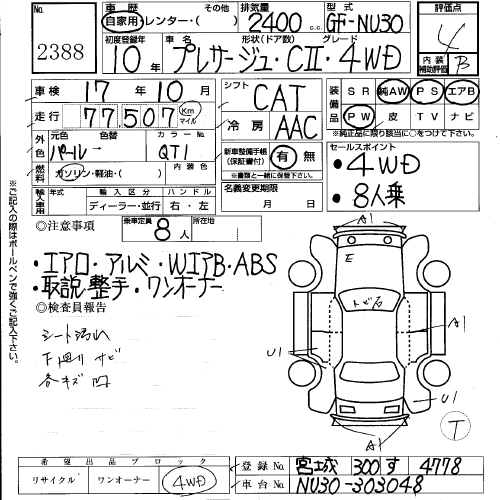 No. 2388
車歴 自家用・レンター・( ) その他
排気量 2400 c.c.
型式 GF-NU30
評価点 4
内装補助評価 B
初度登録年月 10年
車名 プレサージュ・CII・4WD
形状(ドア数) グレード
車検 17年10月
走行 77507 Km マイル
シフト CAT
冷房 AAC
装備品 SR 純AW PS エアB
PW 皮 TV ナビ
※純正品に限り該当に○をつけて下さい。
外色 元色 パール 色替 カラーNo. QT1
燃料 ガソリン・軽油・( ) 内装色
新車整備手帳(保証書付) 有・無
※書類と一緒に保管下さい。
輸入車用 年式 輸入区分 ディーラー・並行 ハンドル 右・左
名義変更期限 月 日
セールスポイント
・4WD
・8人乗
◎注意事項
乗車定員 8人
所在地
・エアロ・アルミ・WエアB・ABS
・取説・整手・ワンオーナー
◎検査員報告
シート汚れ
下廻りサビ
各キズ凹
※ご記入の際はボールペンで強くご記入下さい。
A1
E
トビ石
A1
U1
U1
A1
T
希望出品ブロック
リサイクル ワンオーナー 4WD
登録No. 宮城 300 す 4778
車台No. NU30-303048